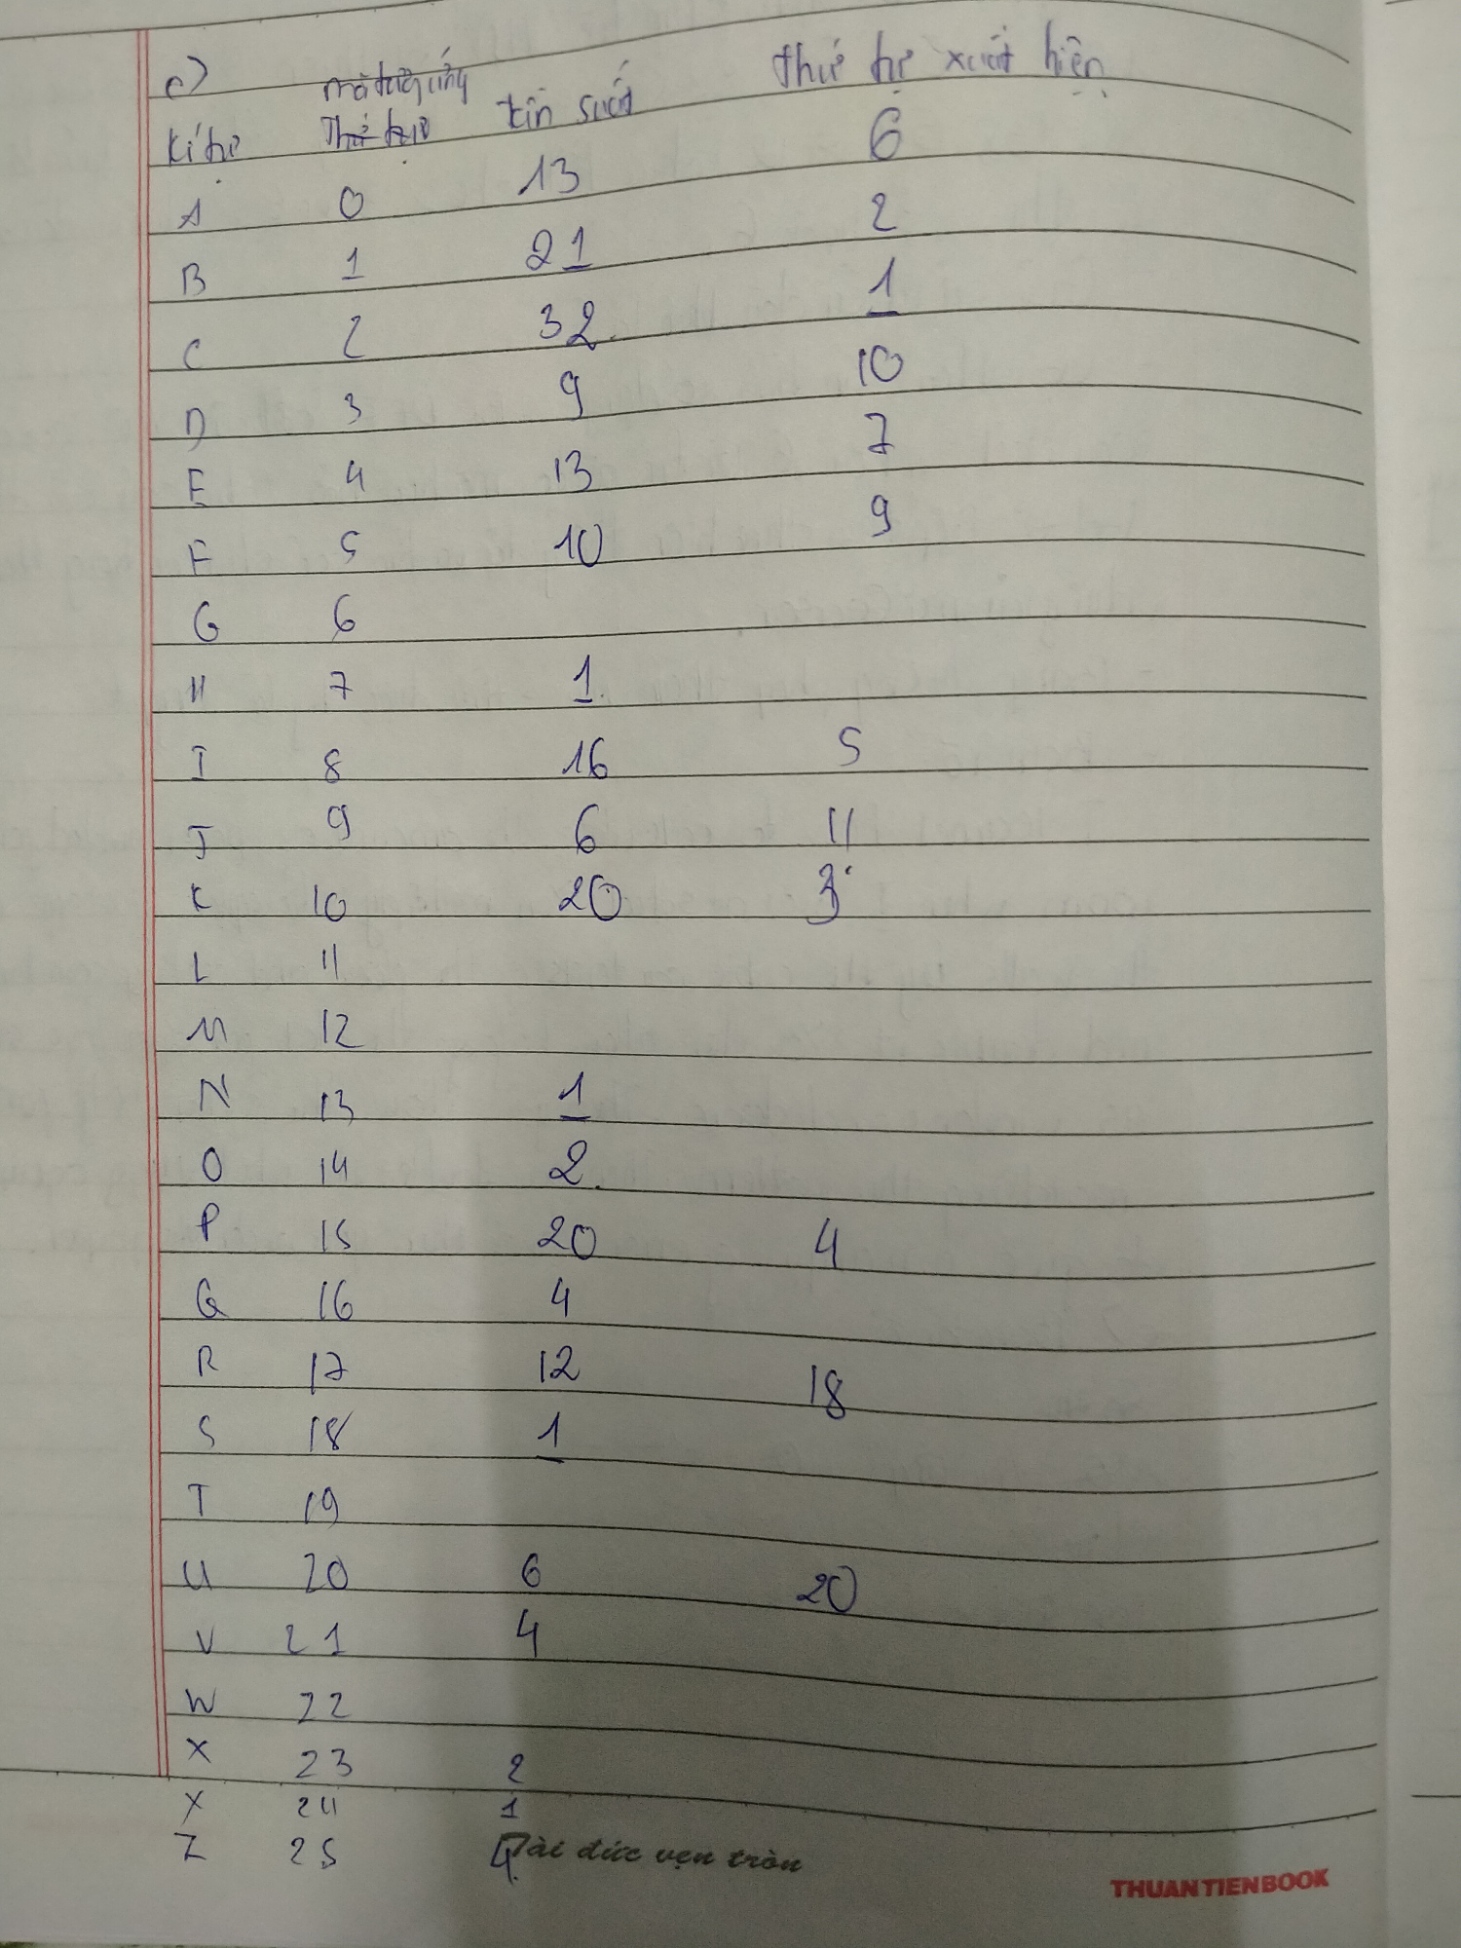 c) mã tương ứng tần suất thứ tự xuất hiện
Kí tự Thứ tự
A 0 13 6
B 1 21 2
C 2 32 1
D 3 9 10
E 4 13 7
F 5 10 9
G 6
H 7 1
I 8 16 5
J 9 6 11
K 10 20 3
L 11
M 12
N 13 1
O 14 2
P 15 20 4
Q 16 4
R 17 12 18
S 18 1
T 19
U 20 6 20
V 21 4
W 22
X 23 2
Y 24 1
Z 25 4
Tài đức vẹn tròn
THUANTIENBOOK